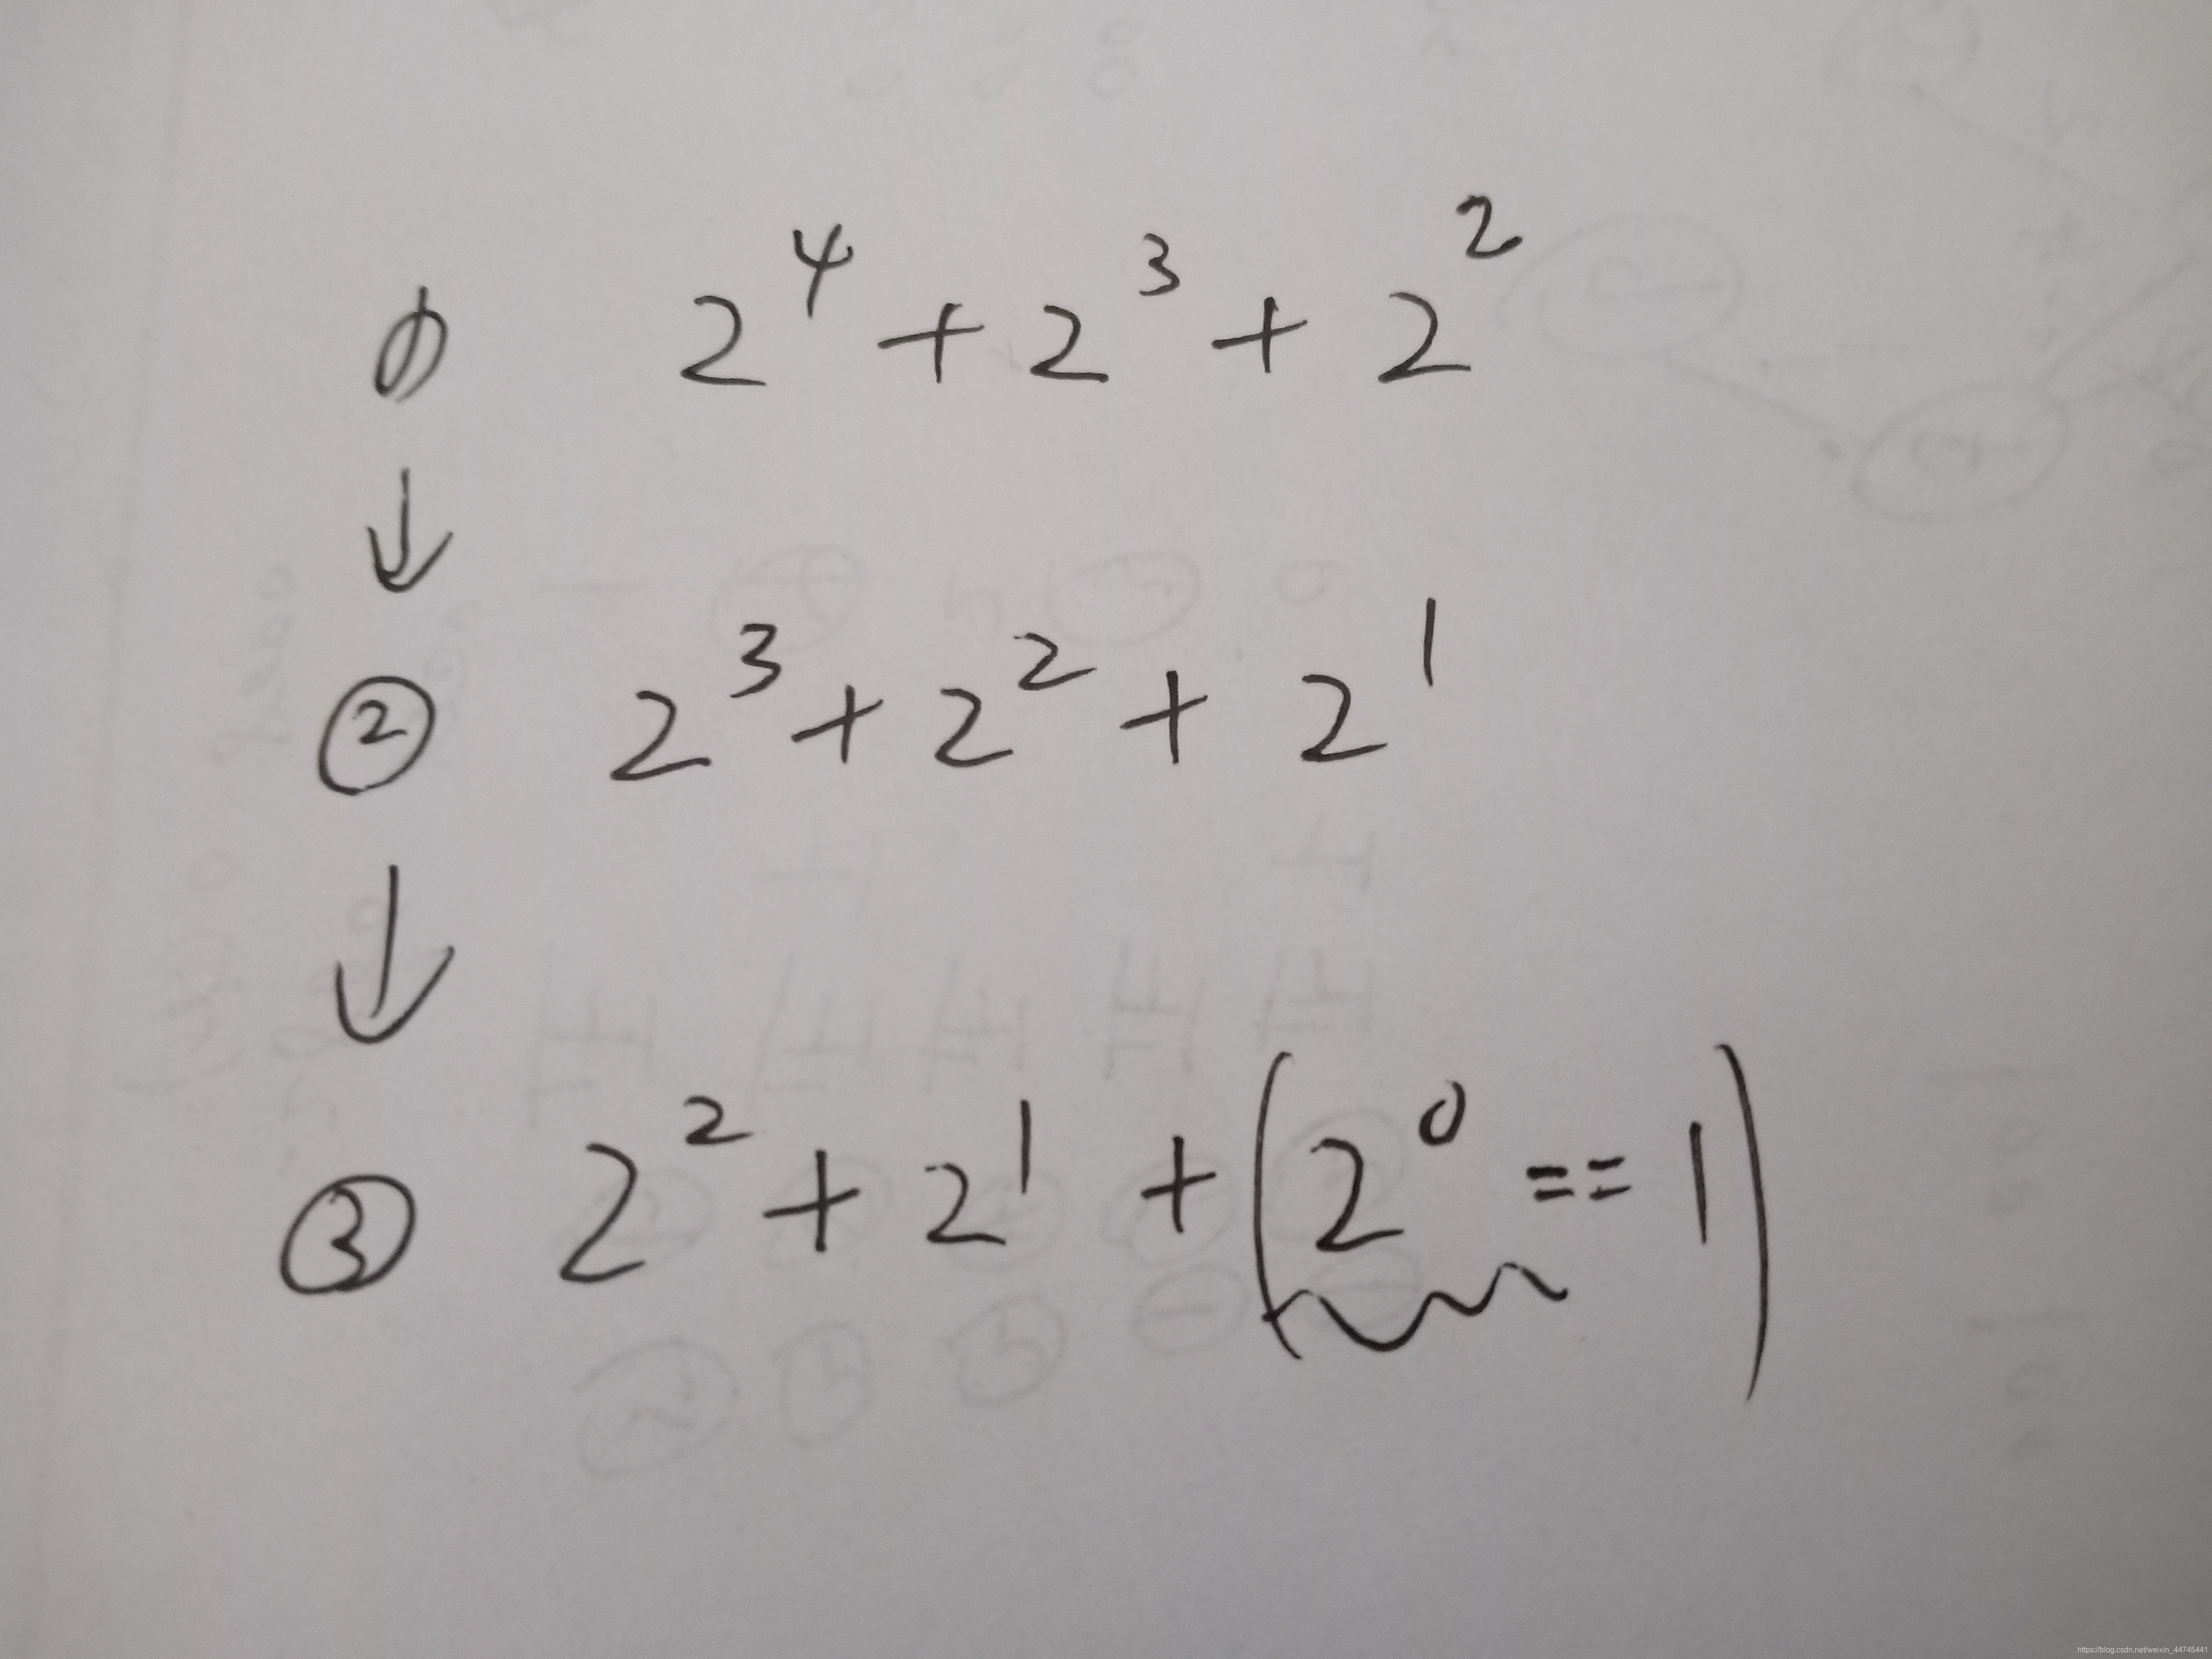 ① 2⁴ + 2³ + 2²
↓
② 2³ + 2² + 2¹
↓
③ 2² + 2¹ + (2⁰ == 1)
https://blog.csdn.net/weixin_44745441